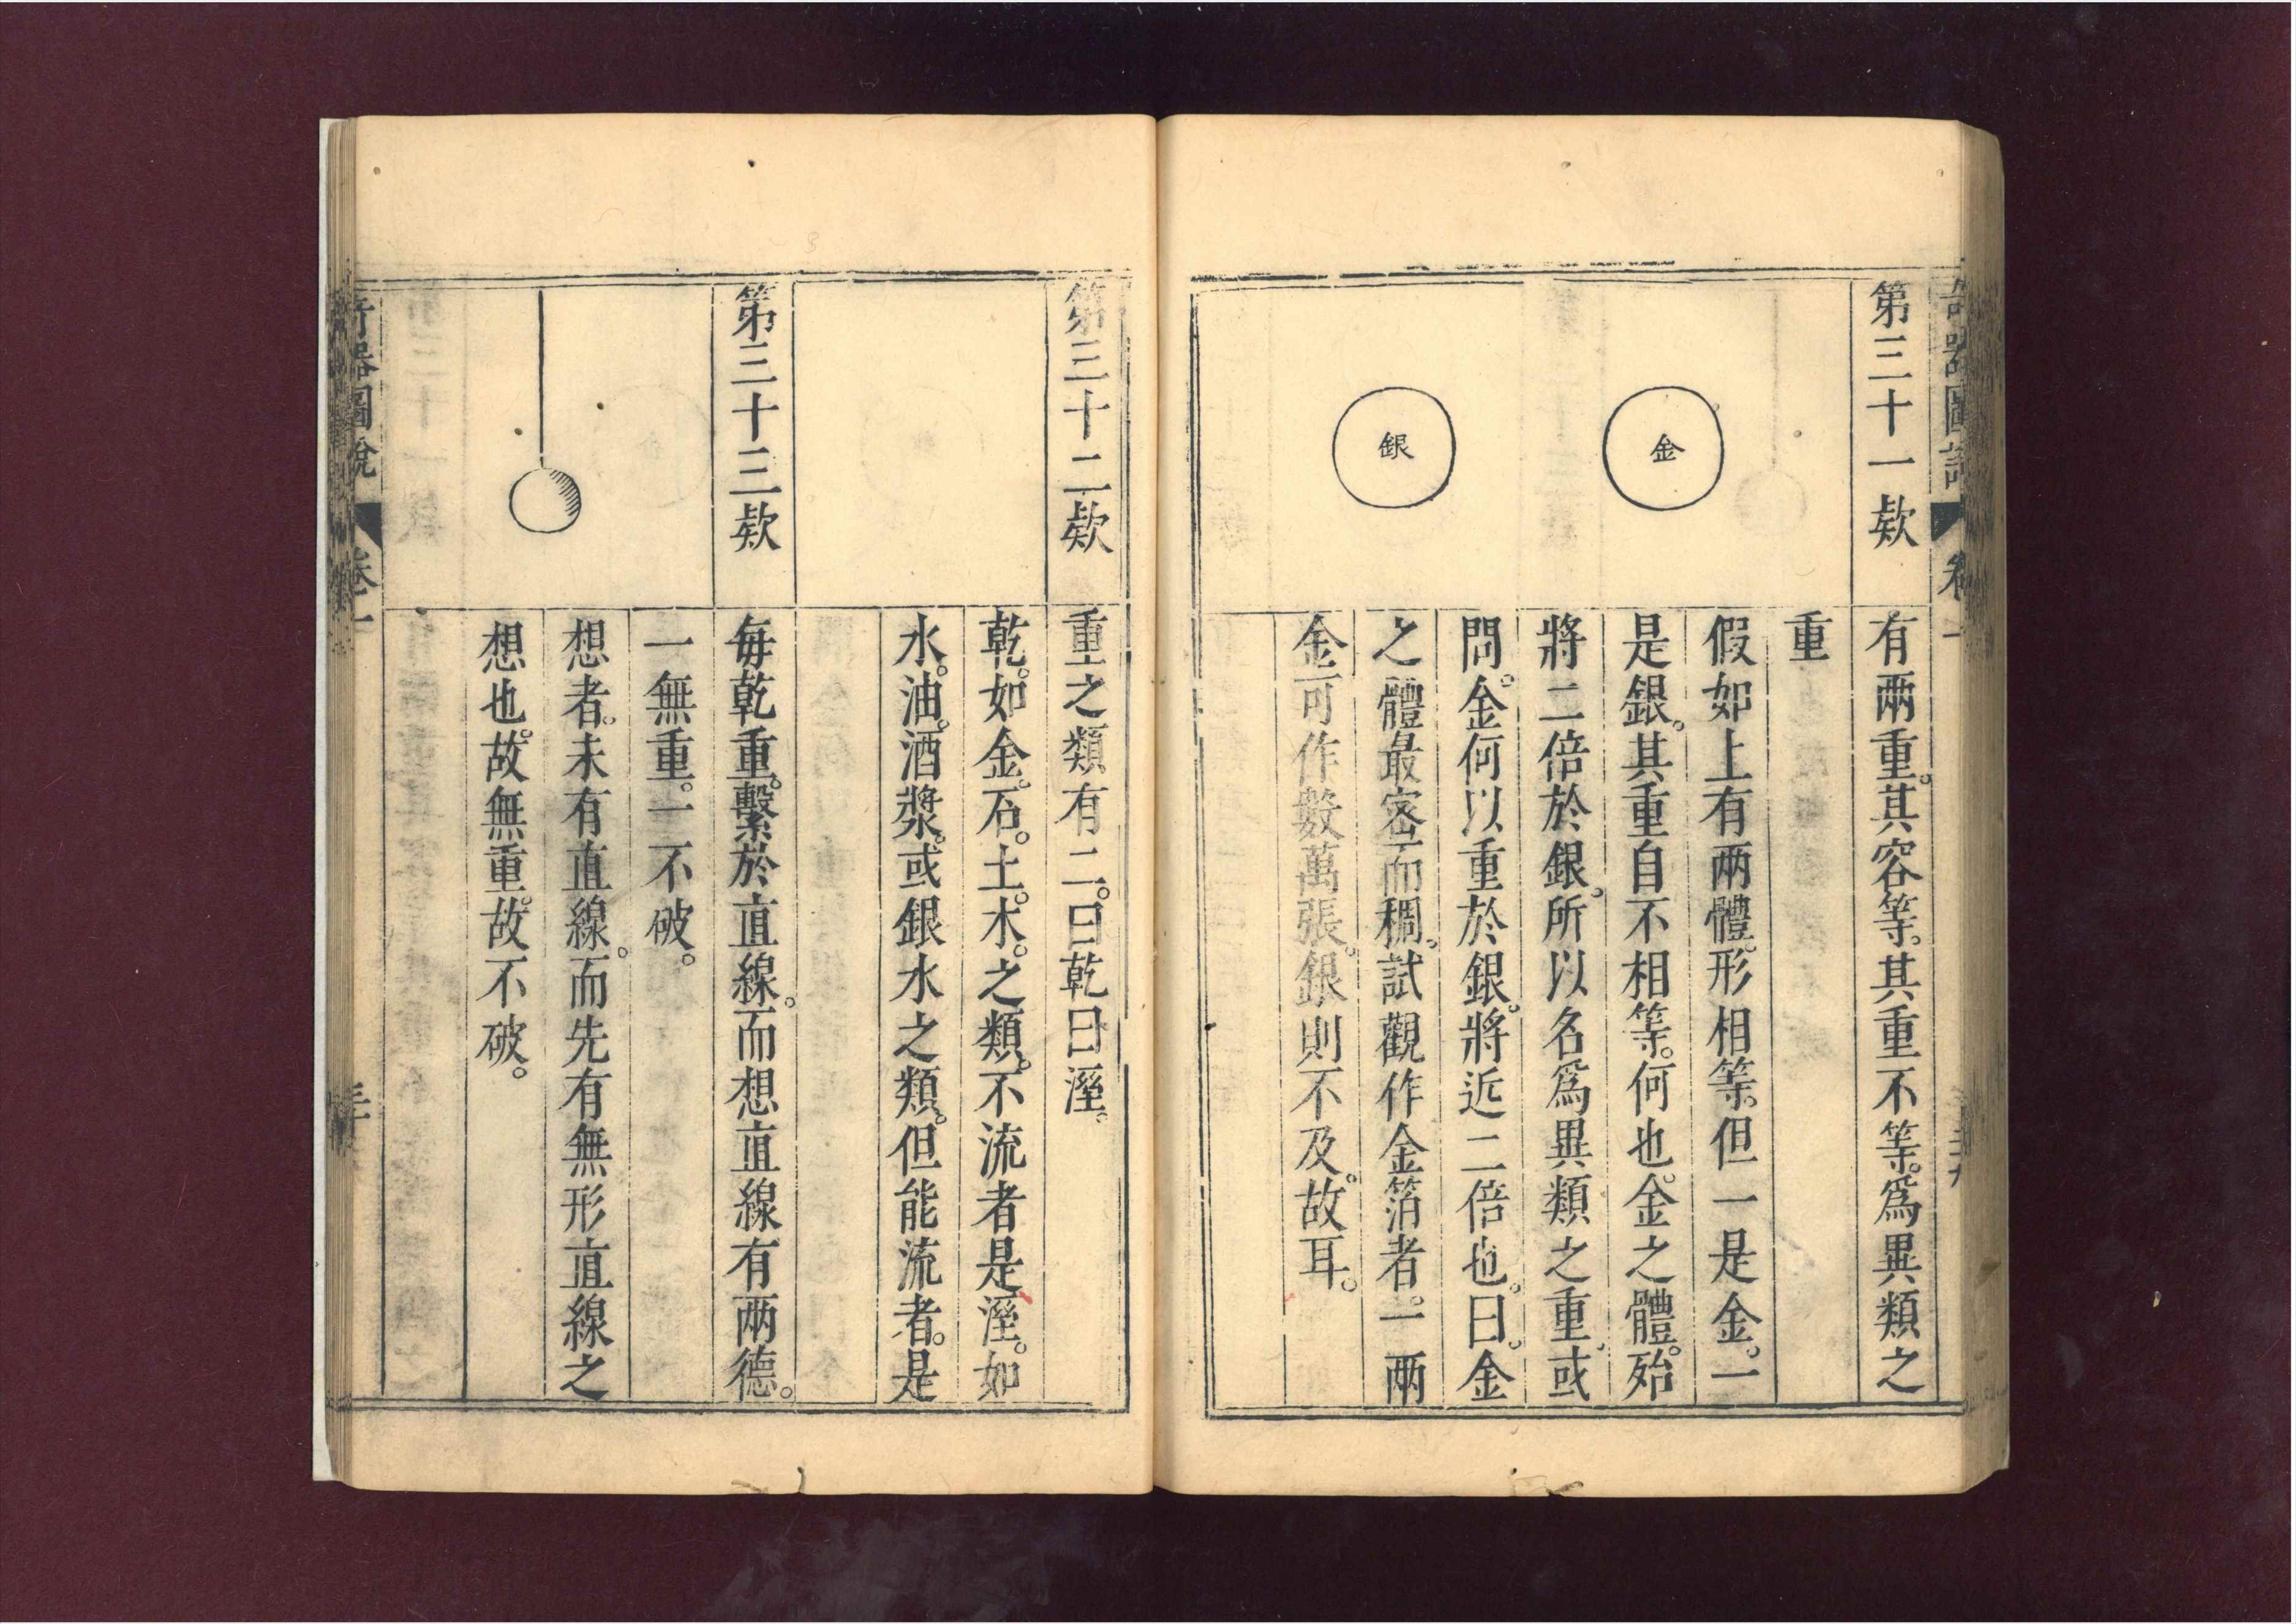 奇器圖說 卷一
第三十一欵
有兩重。其容等。其重不等。爲異類之
重
金
銀
假如上有两體。形相等。但一是金。一
是銀。其重自不相等。何也。金之體。殆
將二倍於銀。所以名爲異類之重。或
問。金何以重於銀。將近二倍也。曰。金
之體最密而稠。試觀作金箔者。一兩
金可作數萬張。銀則不及。故耳。
第三十二欵
重之類有二。曰乾曰溼。
乾。如金。石。土。木。之類。不流者是。溼。如
水。油。酒漿。或銀水之類。但能流者。是
第三十三欵
每乾重。繫於直線。而想直線有兩德。
一無重。一不破。
想者。未有直線。而先有無形直線之
想也。故無重。故不破。
奇器圖說 卷一 三十